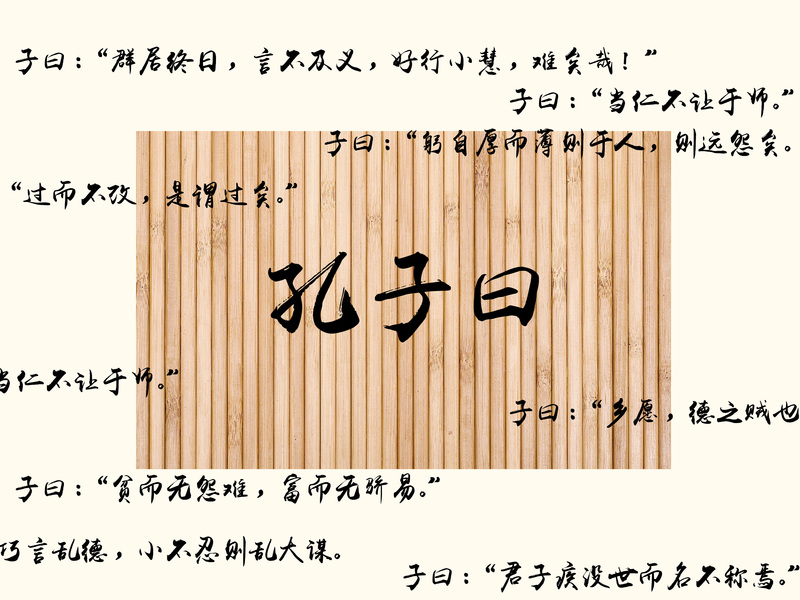 子曰：“群居终日，言不及义，好行小慧，难矣哉！”
子曰：“当仁不让于师。”
子曰：“躬自厚而薄则于人，则远怨矣。
“过而不改，是谓过矣。”
孔子曰
当仁不让于师。”
子曰：“乡愿，德之贼也
子曰：“贫而无怨难，富而无骄易。”
巧言乱德，小不忍则乱大谋。
子曰：“君子疾没世而名不称焉。”